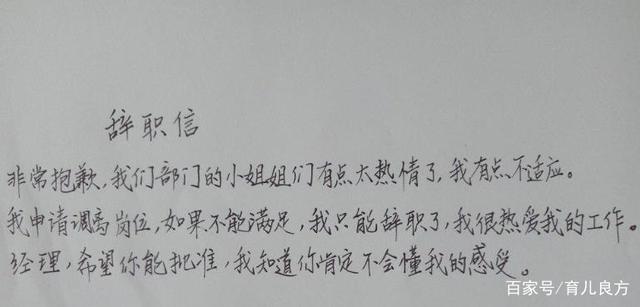 辞职信
非常抱歉，我们部门的小姐姐们有点太热情了，我有点不适应。
我申请调离岗位，如果不能满足，我只能辞职了，我很热爱我的工作。
经理，希望你能批准，我知道你肯定不会懂我的感受。
百家号/育儿良方